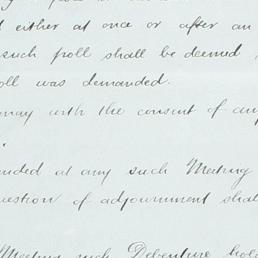 either at once or after an
such poll shall be deemed
was demanded.
may with the consent of any
at any such Meeting
of adjournment shal
Meeting such Debenture hol